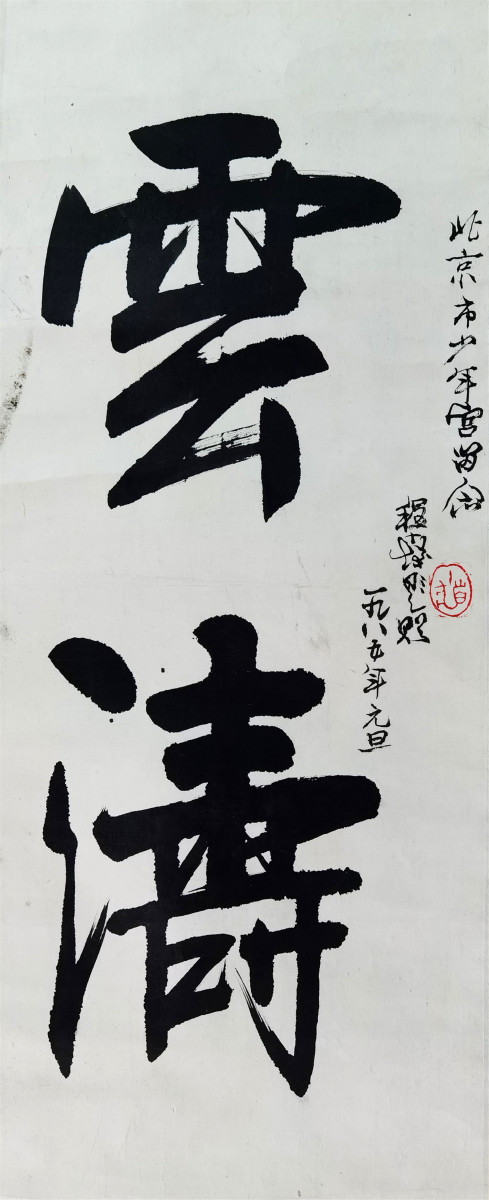 雲濤
北京市少年宫留念
程
一九八五年元旦